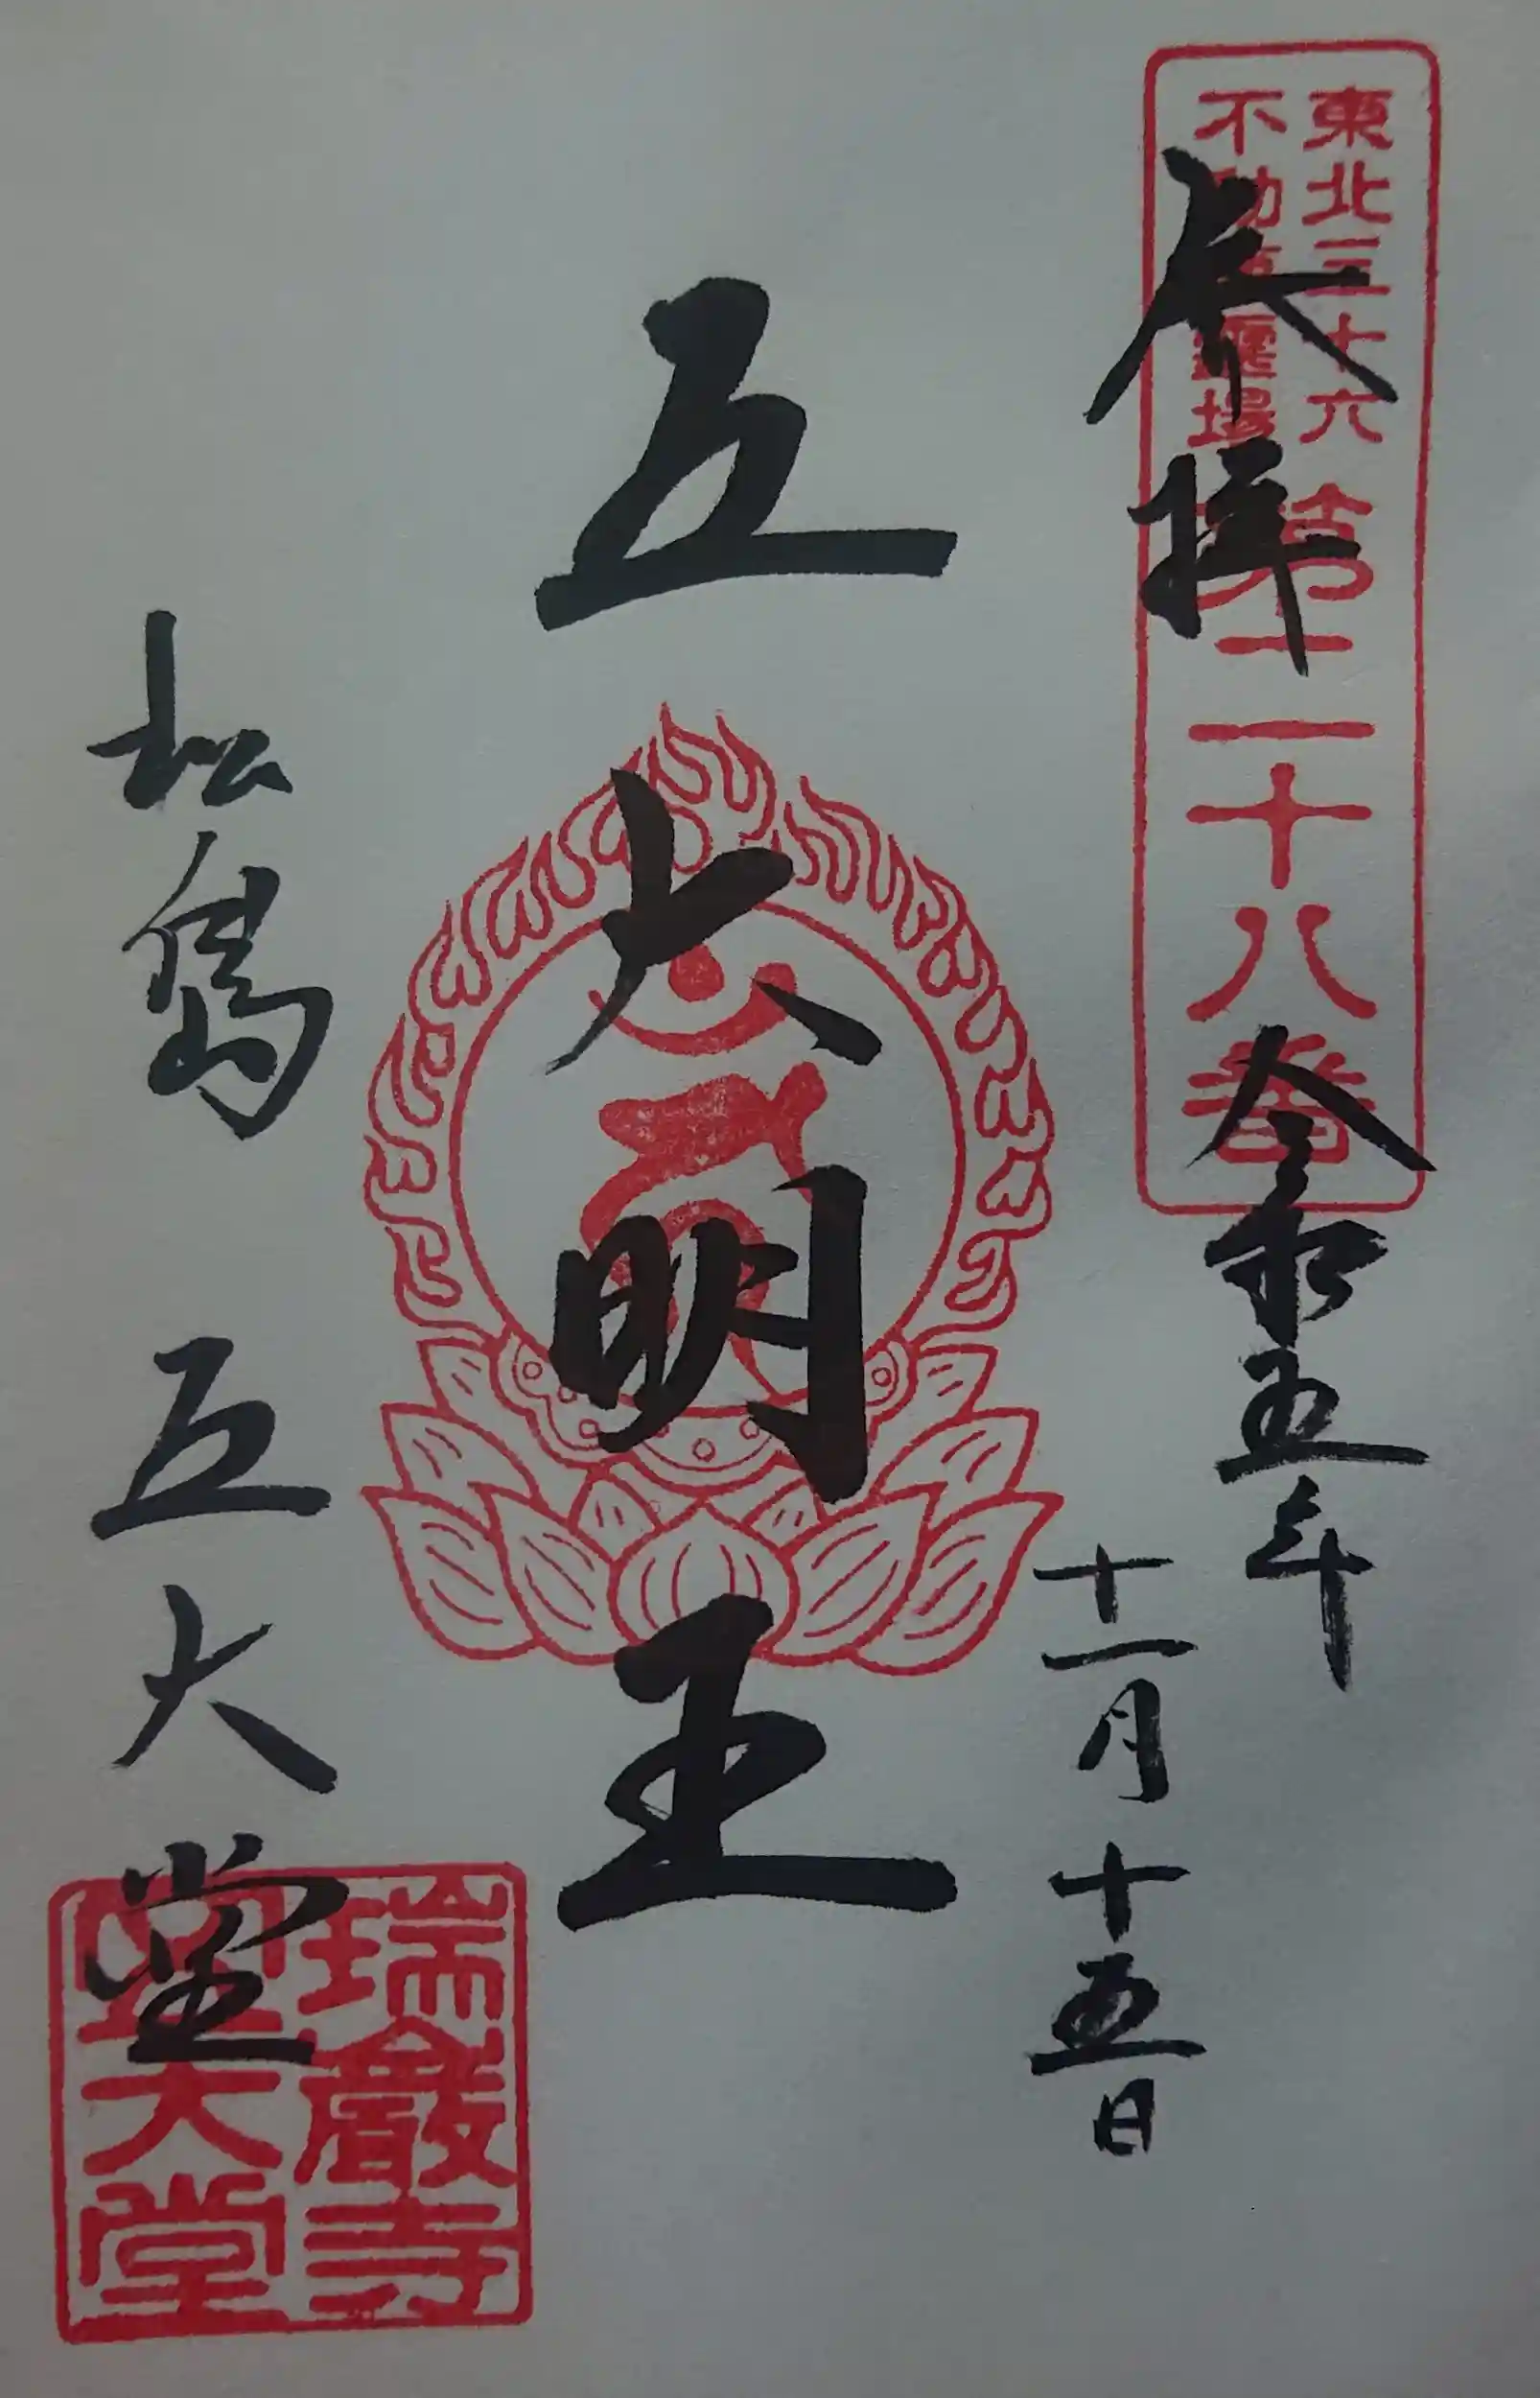 東北三十六
不動尊霊場
第二十八番
奉拝
令和五年
十一月十五日
五大明王
松島 五大堂
瑞巌寺
五大堂